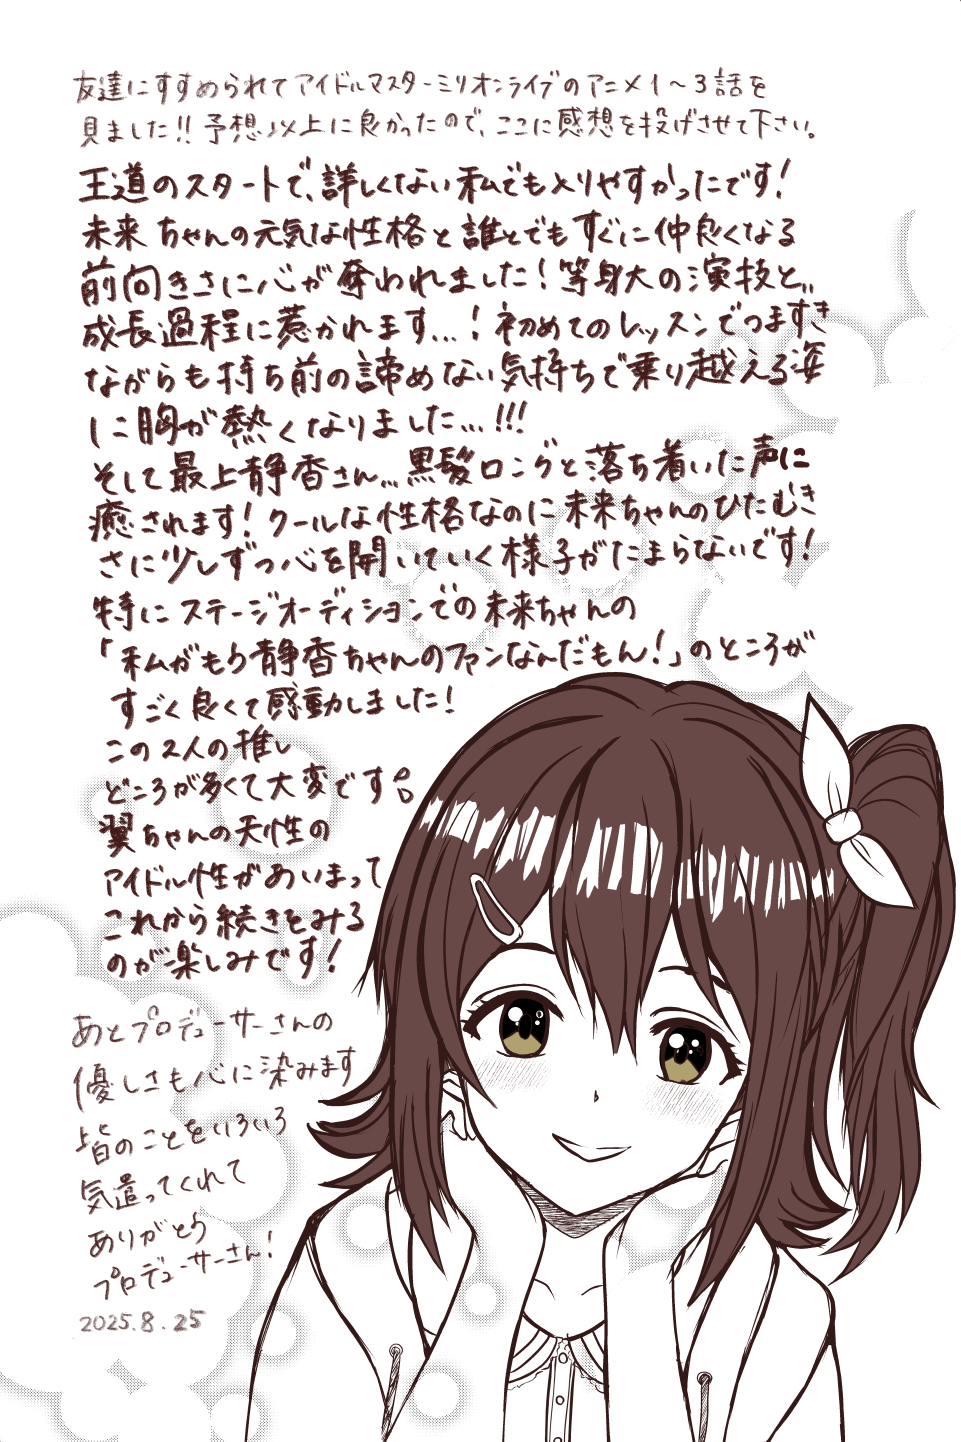 友達にすすめられてアイドルマスターミリオンライブのアニメ1〜3話を
見ました!!予想以上に良かったので、ここに感想を投げさせて下さい。
王道のスタートで、詳しくない私でも入りやすかったです!
未来ちゃんの元気な性格と誰とでもすぐに仲良くなる
前向きさに心が奪われました!等身大の演技と、、
成長過程に惹かれます...!初めてのレッスンでつまずき
ながらも持ち前の諦めない気持ちで乗り越える姿
に胸が熱くなりました...!!!
そして最上静香さん...黒髪ロングと落ち着いた声に
癒されます!クールな性格なのに未来ちゃんのひたむき
さに少しずつ心を開いていく様子がたまらないです!
特にステージオーディションでの未来ちゃんの
「私がもう静香ちゃんのファンなんだもん!」のところが
すごく良くて感動しました!
この2人の推し
どころが多くて大変です。
翼ちゃんの天性の
アイドル性があいまって
これから続きをみる
のが楽しみです!
あとプロデューサーさんの
優しさも心に染みます
皆のことをいろいろ
気遣ってくれて
ありがとう
プロデューサーさん!
2025.8.25